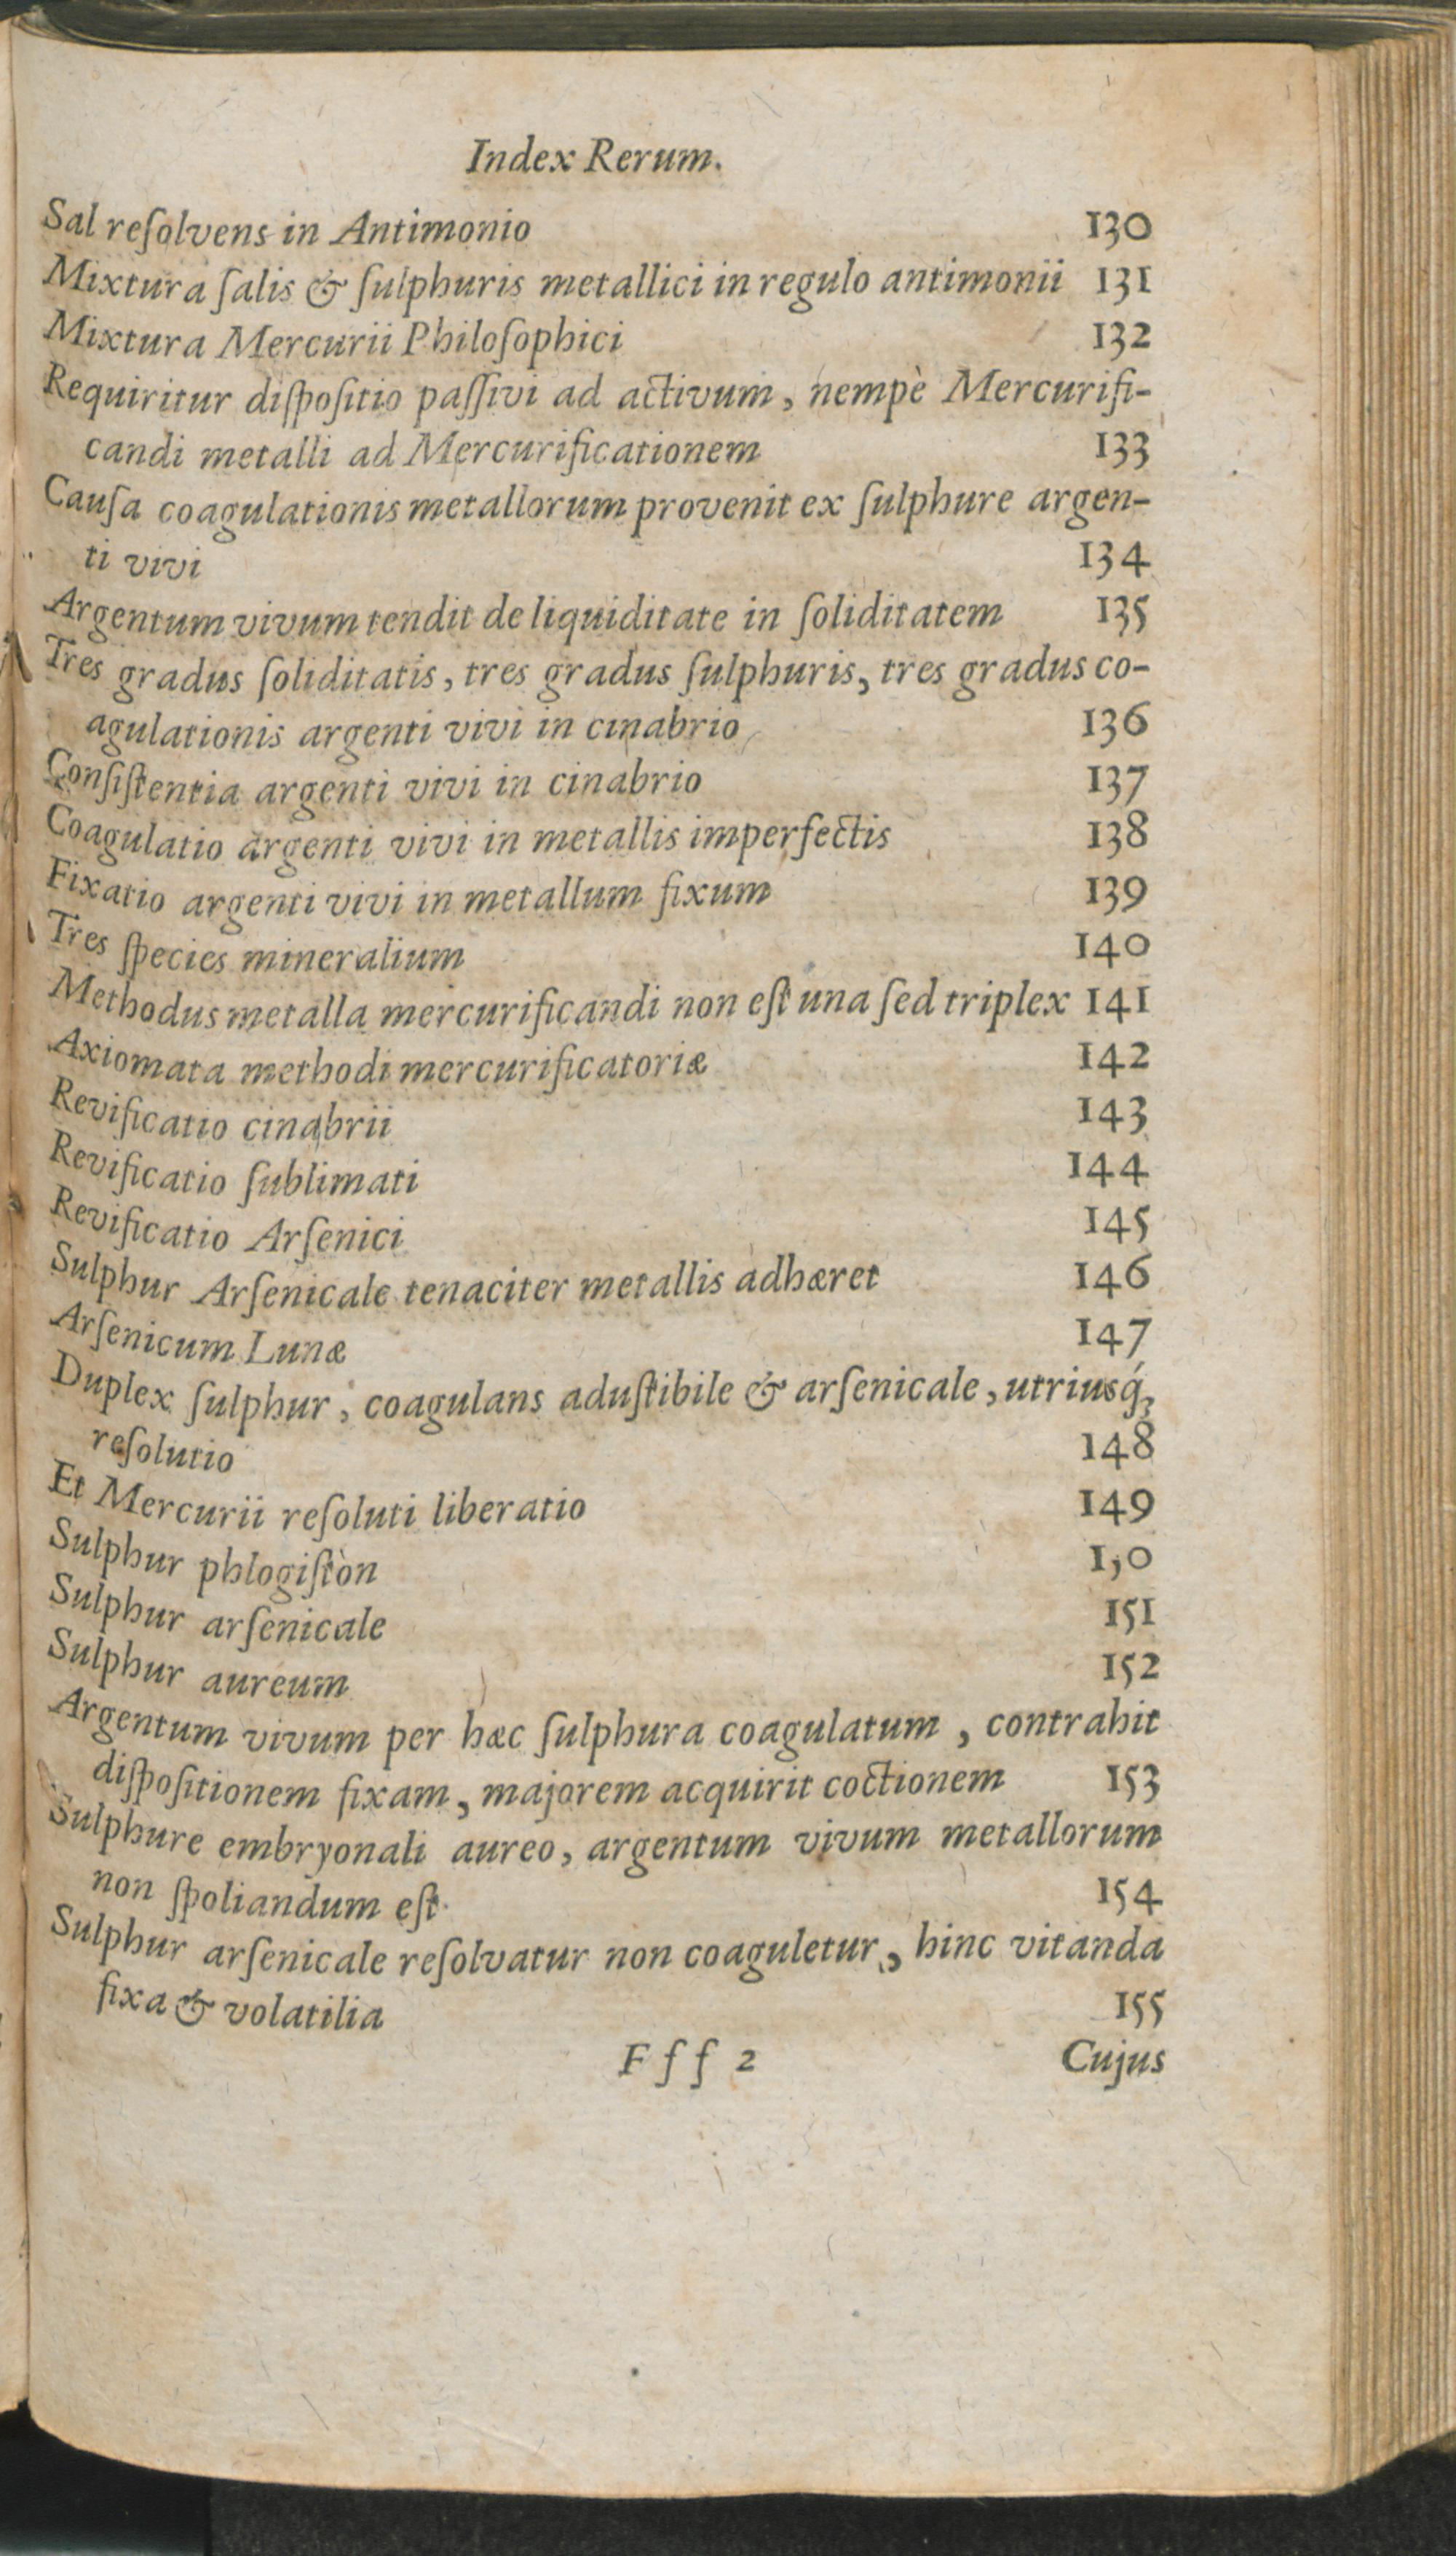 Index Rerum.
Sal reſolvens in Antimonio 130
Mixtura ſalis & ſulphuris metallici in regulo antimonii 131
Mixtura Mercurii Philoſophici 132
Requiritur diſpoſitio paſſivi ad activum, nempè Mercurifi-
candi metalli ad Mercurificationem 133
Cauſa coagulationis metallorum provenit ex ſulphure argen-
ti vivi 134
Argentum vivum tendit de liquiditate in ſoliditatem 135
Tres gradus ſoliditatis, tres gradus ſulphuris, tres gradus co-
agulationis argenti vivi in cinabrio 136
Conſiſtentia argenti vivi in cinabrio 137
Coagulatio argenti vivi in metallis imperfectis 138
Fixatio argenti vivi in metallum fixum 139
Tres ſpecies mineralium 140
Methodus metalla mercurificandi non eſt una ſed triplex 141
Axiomata methodi mercurificatoriæ 142
Revificatio cinabrii 143
Revificatio ſublimati 144
Revificatio Arſenici 145
Sulphur Arſenicale tenaciter metallis adhæret 146
Arſenicum Lunæ 147
Duplex ſulphur, coagulans aduſtibile & arſenicale, utriusq́;
reſolutio 148
Et Mercurii reſoluti liberatio 149
Sulphur phlogiſtòn 150
Sulphur arſenicale 151
Sulphur aureum 152
Argentum vivum per hæc ſulphura coagulatum, contrahit
diſpoſitionem fixam, majorem acquirit coctionem 153
Sulphure embryonali aureo, argentum vivum metallorum
non ſpoliandum eſt 154
Sulphur arſenicale reſolvatur non coaguletur, hinc vitanda
fixa & volatilia 155
F f f 2 Cujus